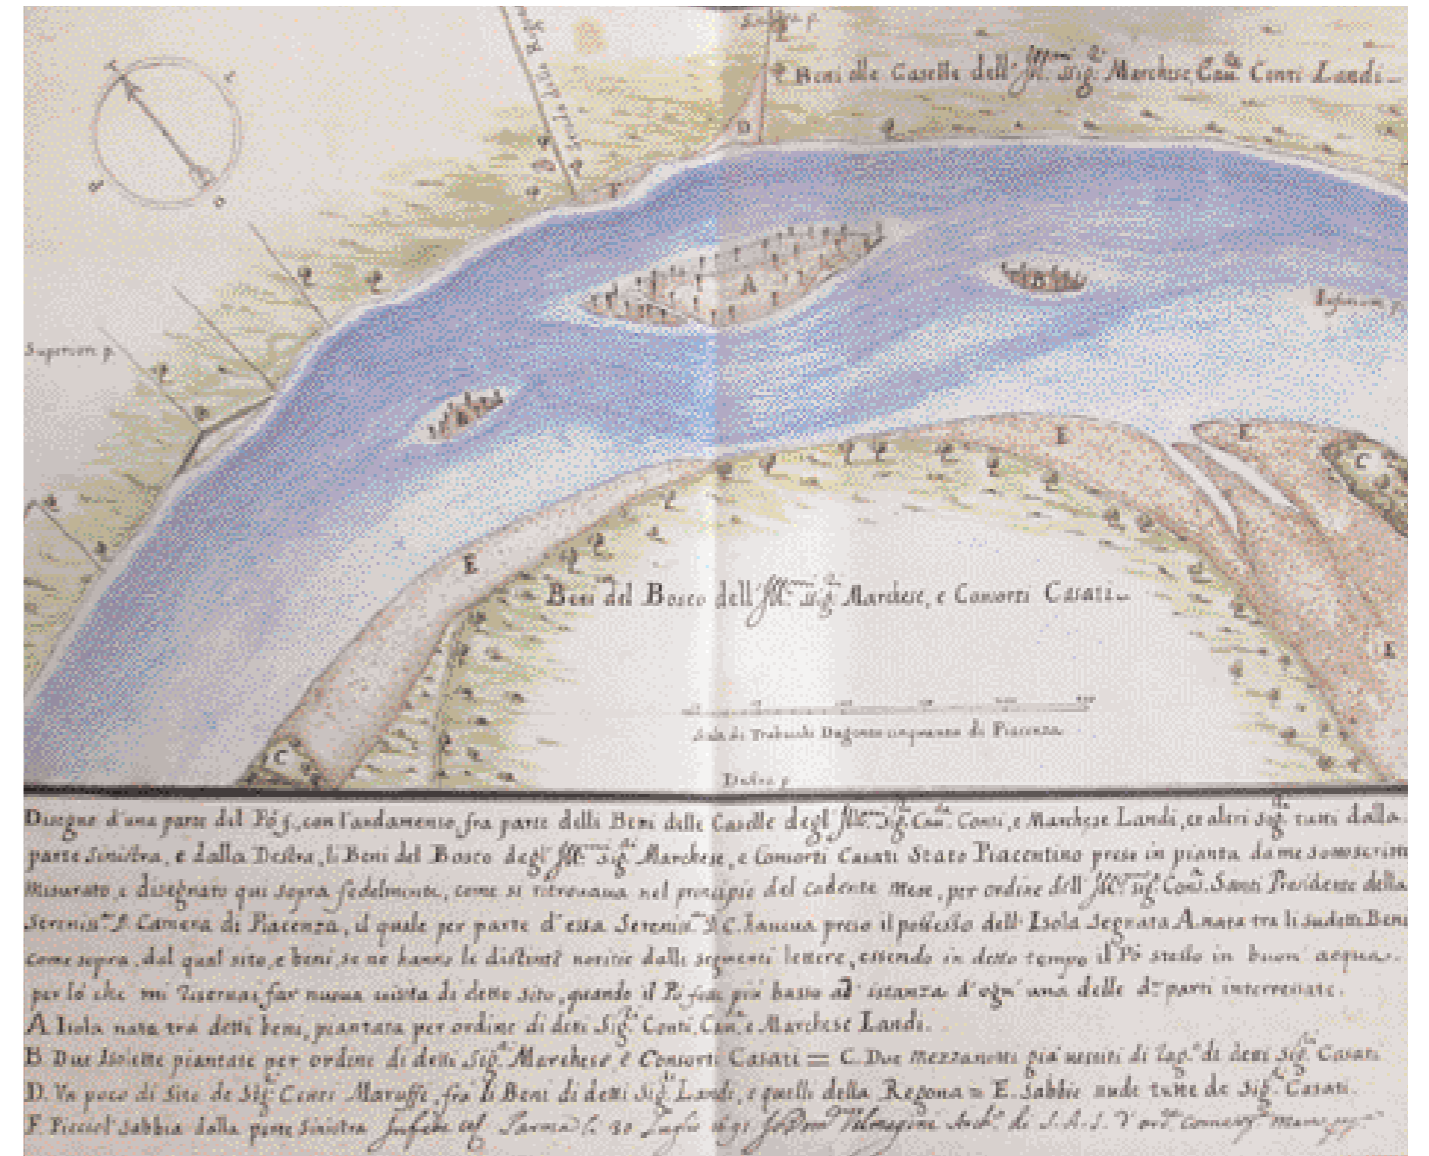 Sinistra p.
Beni alle Caselle dell' Ill.mi Sig.ri Marchese, Cau. Conti Landi
Strada della Regona
D
F
A
B
Inferior p.
Superior p.
B
E
E
C
E
Beni del Bosco dell' Ill.mi Sig.ri Marchese, e Consorti Casati
E
Scala di Trabucchi Dugento cinquanta di Piacenza
C
Destra p.
Disegno d'una parte del Pó con l'andamento fra parte delli Beni delle Caselle degl' Ill.mi Sig.ri Conti, e Marchese Landi, et altri Sig.ri tutti dalla
parte Sinistra, e dalla Destra, li Beni del Bosco degl' Ill.mi Sig.ri Marchese, e Consorti Casati Stato Piacentino prese in pianta da me
misurato, e disegnato qui sopra fedelmente, come si ritrouaua nel principio del cadente Mese, per ordine dell' Ill.mo Sig. Santi Presidente della
Camera di Piacenza, il quale per parte d'essa C. haueua preso il possesso dell' Isola Segnata A. nata tra li sudetti Beni
come sopra, dal qual sito, e beni, se ne hanno le distinte notitie dalle seguenti lettere, essendo in detto tempo il Pó stesso in buon' acqua.
per ló che mi riseruai far nuoua uisita di detto sito, quando il Pó fosse più basso ad istanza d'ogn' una delle parti interessate.
A Isola nata trá detti beni, piantata per ordine di detti Sig.ri Conti, e Marchese Landi.
B. Due Isolette piantate per ordine di detti Sig.ri Marchese, e Consorti Casati = C. Due Mezzanotti già uestiti di detti Sig.ri Casati
D. Vn poco di Sito de Sig.ri Conti Maruffi, frá li Beni di detti Sig.ri Landi, e quelli della Regona = E. Sabbie nude tutte de Sig.ri Casati.
F. Picciol' Sabbia dalla parte Sinistra Parma li 20 Luglio